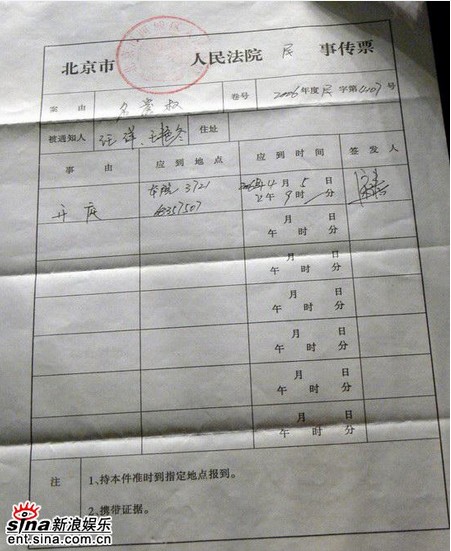 北京市 人民法院 民 事传票
案 由 名誉权 卷号 2006年度民字第 号
被通知人 汪洋、王艳冬 住址
事 由 应到地点 应到时间 签发人
开庭 本院 3721 4月5日
63357507 上午9时 分
月 日
午 时 分
月 日
午 时 分
月 日
午 时 分
月 日
午 时 分
月 日
午 时 分
月 日
午 时 分
注 1、持本件准时到指定地点报到。
2、携带证据。
sina 新浪娱乐
ent.sina.com.cn